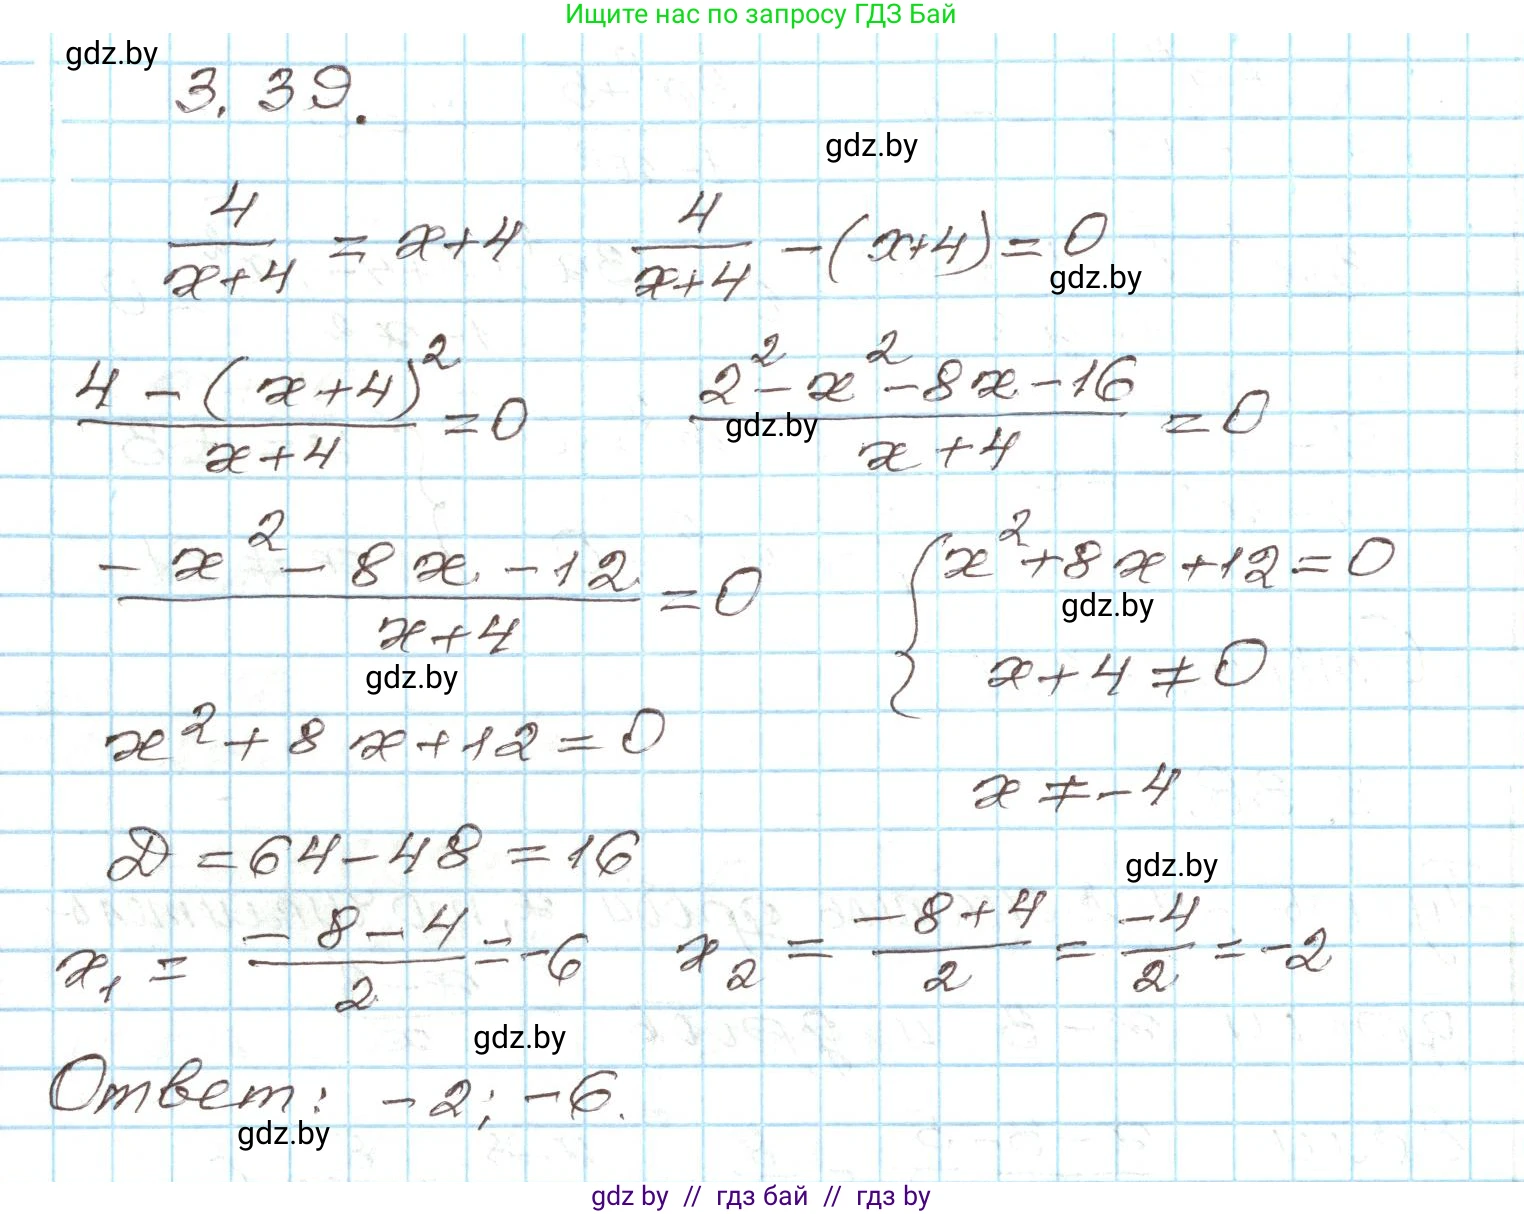 Ищите нас по запросу ГДЗ Бай
gdz.by
3.39.
gdz.by
4/(x+4) = x+4    4/(x+4) - (x+4) = 0
gdz.by
(4-(x+4)²)/(x+4) = 0    (2²-x²-8x-16)/(x+4) = 0
gdz.by
(-x²-8x-12)/(x+4) = 0    { x²+8x+12=0
gdz.by
x+4≠0
gdz.by
x²+8x+12=0
x≠-4
D=64-48=16
gdz.by
x₁ = (-8-4)/2 = -6    x₂ = (-8+4)/2 = -4/2 = -2
gdz.by
Ответ: -2; -6.
gdz.by
gdz by // гдз бай // гдз by